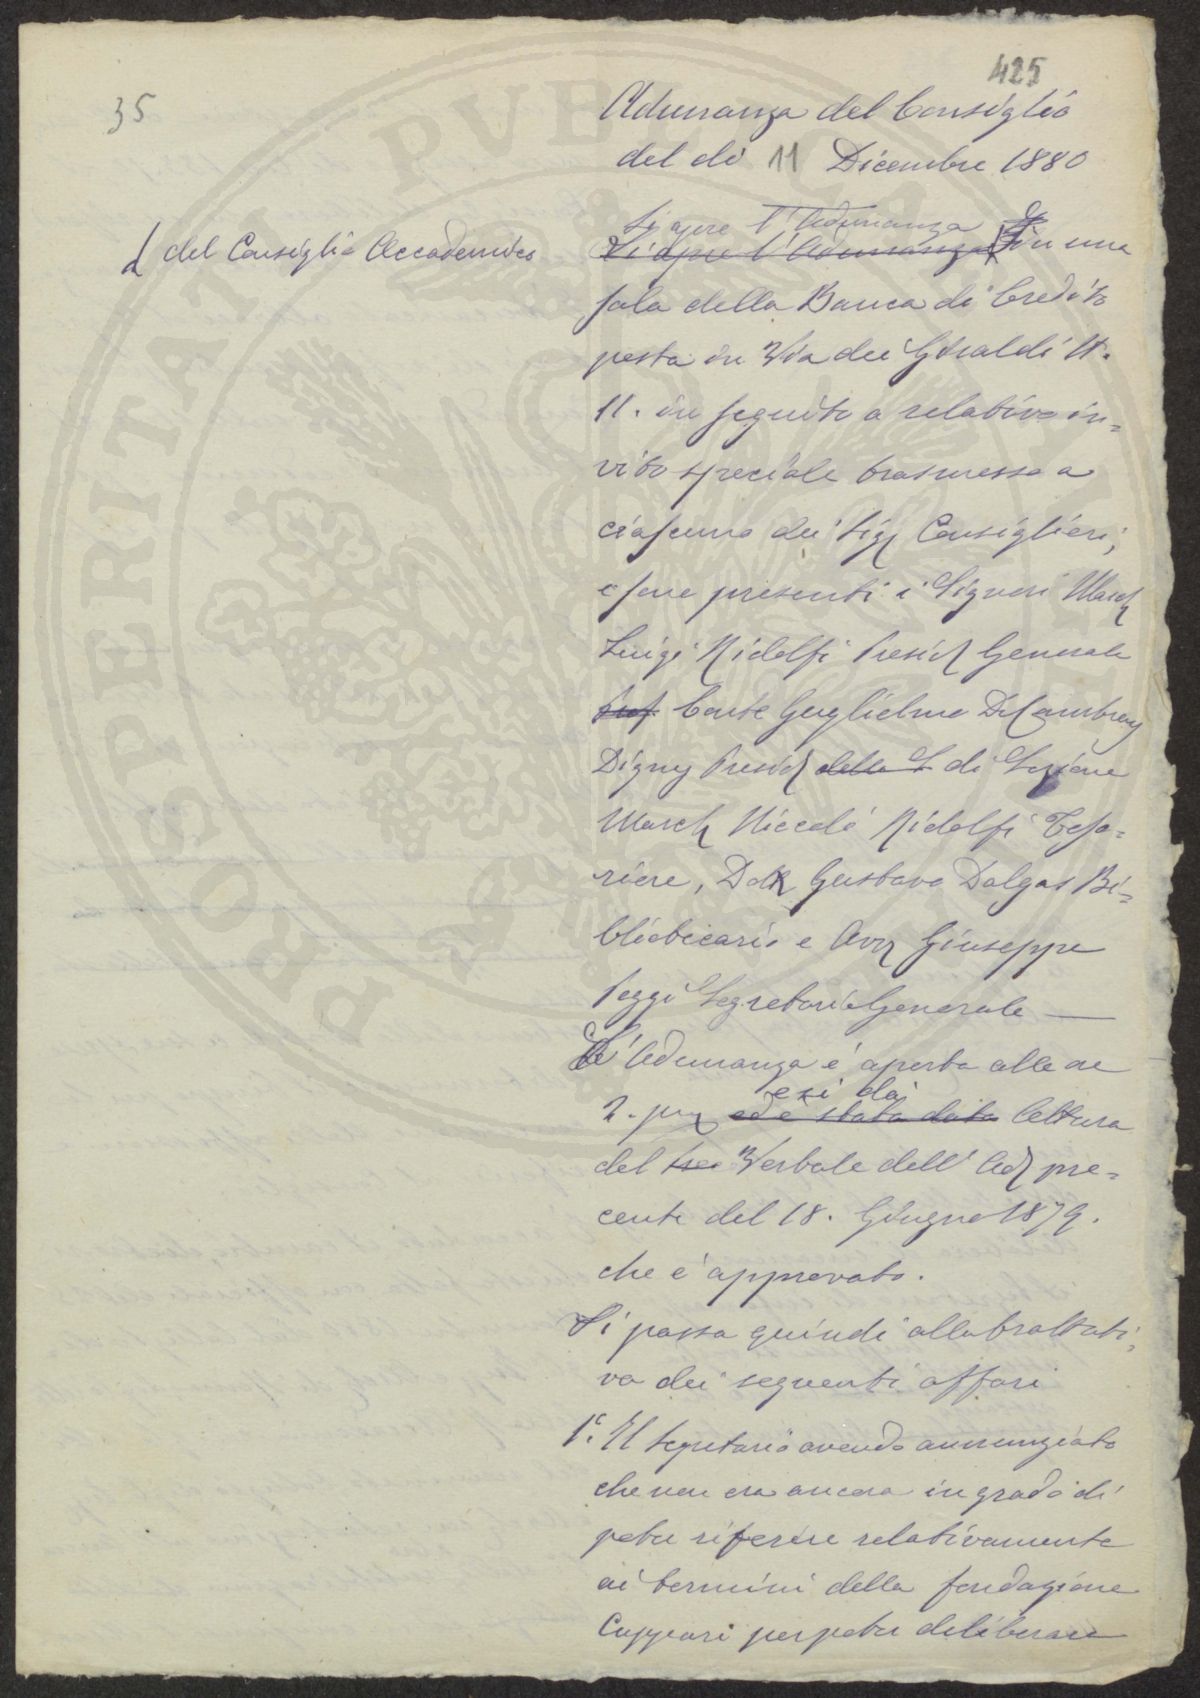 425
35
Adunanza del Consiglio
del dì 11 Dicembre 1880
Si apre l'Adunanza
del Consiglio Accademico
Si apre l'Adunanza in una
sala della Banca di Credito
posta in Via dei Giraldi N.
11. in seguito a relativo in=
vito speciale trasmesso a
ciascuno dei Sigg Consiglieri,
e sono presenti i Signori March
Luigi Ridolfi Presid Generale
Prof Conte Guglielmo De Cambray
Digny Presid della S di Sezione
March Niccolò Ridolfi Teso=
riere, Dott Gustavo Dalgas Bi=
bliotecario e Avv Giuseppe
Poggi Segretario Generale —
L'Adunanza è aperta alle ore
e si dà
2. pom ed è stata data lettura
del Verbale dell'Ad pre=
cente del 18. Giugno 1879.
che è approvato.
Si passa quindi alla trattati=
va dei seguenti affari
1° Il Segretario avendo annunziato
che non era ancora in grado di
poter riferire relativamente
ai termini della fondazione
Cuppari per poter deliberare